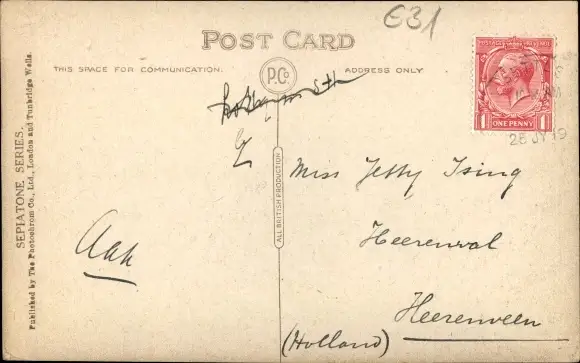 631
POST CARD
THIS SPACE FOR COMMUNICATION.
ADDRESS ONLY
P.Co
POSTAGE REVENUE
1 ONE PENNY 1
28 JY 19
SEPIATONE SERIES.
Published by The Photochrom Co., Ltd., London and Tunbridge Wells.
ALL BRITISH PRODUCTION
Miss Jetty Tsing
Heerenwal
Heerenveen
(Holland)